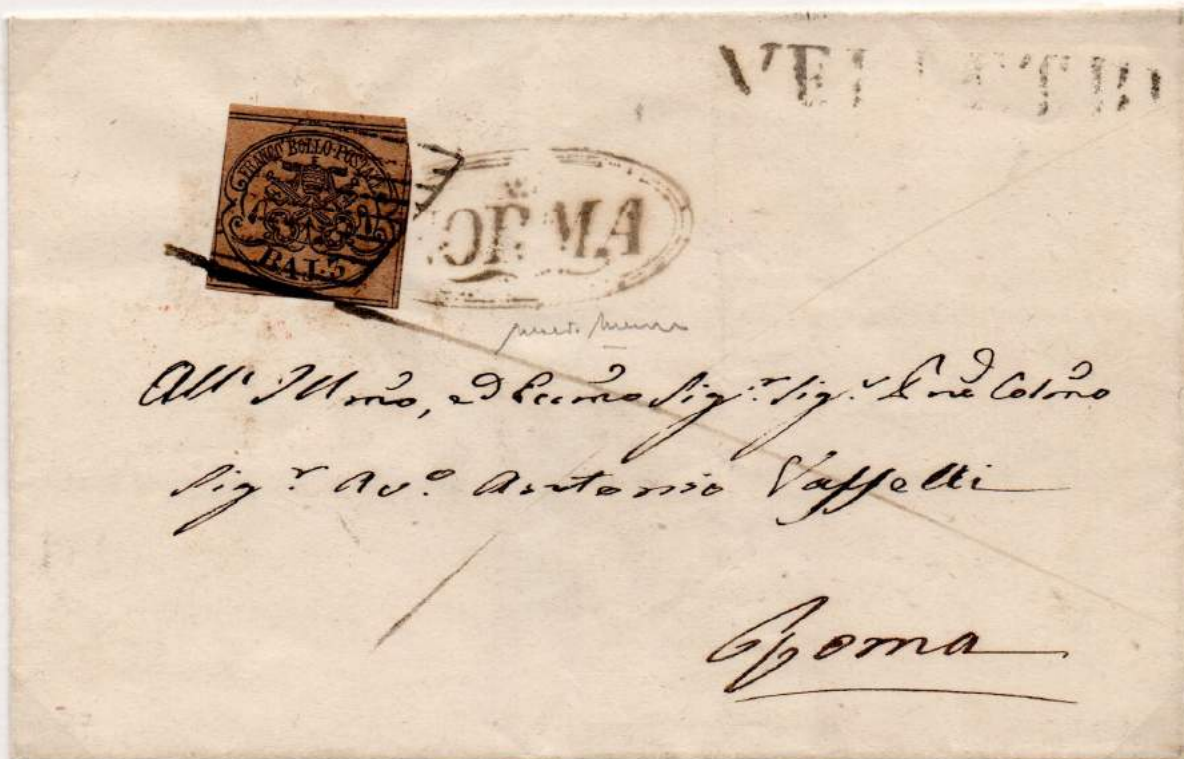 VELLETRI
FRANCO BOLLO POSTALE
BAJ. 3
NORMA
All' Illmo, ed Eccmo Sig.r Sig.r Pne Colmo
Sig.r Avo. Antonio Vasselli
Roma